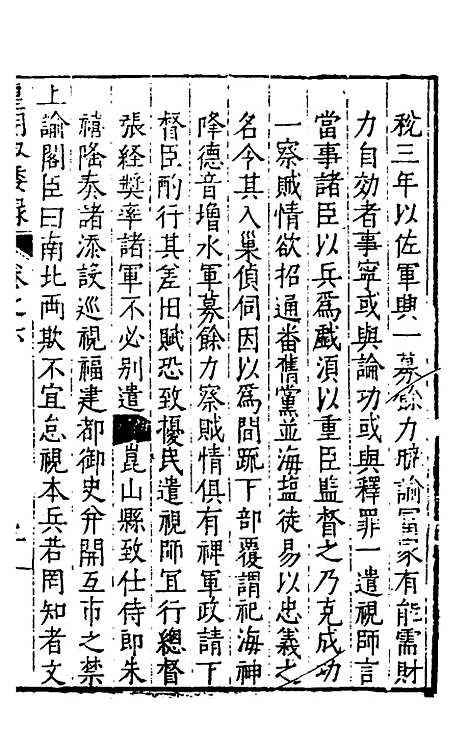 稅三年以佐軍興一募餘力曉諭富家有能需財
力自効者事寧或與論功或與釋罪一遣視師言
當事諸臣以兵爲戲須以重臣監督之乃克成功
一察賊情欲招通番舊黨並海塩徒易以忠義之
名令其入巢偵伺因以爲間䟽下部覆謂祀海神
降德音增水軍募餘力察賊情俱有裨軍政請下
督臣酌行其差田賦恐致擾民遣視師宜行總督
張経奨率諸軍不必別遣崑山縣致仕侍郎朱
禧隆泰諸添設廵視福建都御史并開互市之禁
上諭閣臣曰南北兩欺不宜怠視本兵若罔知者文